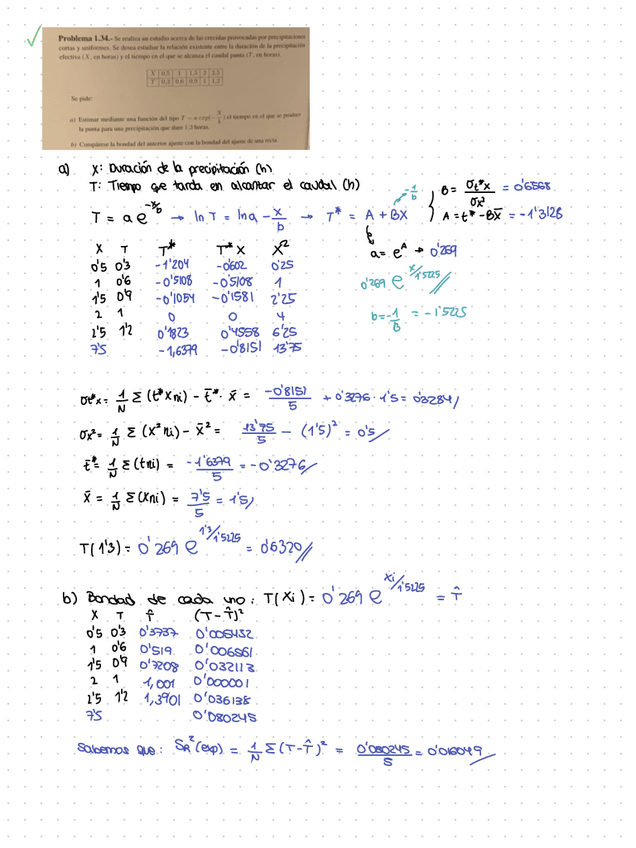 Problema 1.34.- Se realiza un estudio acerca de las crecidas provocadas por precipitaciones
cortas y uniformes. Se desea estudiar la relación existente entre la duración de la precipitación
efectiva (X, en horas) y el tiempo en el que se alcanza el caudal punta (T, en horas).
X 0,5 1 1,5 2 2,5
T 0,3 0,6 0,9 1 1,2
Se pide:
a) Estimar mediante una función del tipo T = a exp(-X/b) el tiempo en el que se produce
la punta para una precipitación que dure 1.3 horas.
b) Compárese la bondad del anterior ajuste con la bondad del ajuste de una recta.
a) X: Duración de la precipitación (h)
T: Tiempo que tarda en alcanzar el caudal (h)
T = a e^(-x/b) → ln T = ln a - x/b → T* = A + BX
-1/b
B = σt*x / σx² = 0'6568
A = t̄* - B x̄ = -1'3128
a = e^A → 0'269
0'269 e^(x/1'5225)
b = -1/B = -1'5225
X T T* T* X X²
0'5 0'3 -1'204 -0'602 0'25
1 0'6 -0'5108 -0'5108 1
1'5 0'9 -0'1054 -0'1581 2'25
2 1 0 0 4
2'5 1'2 0'1823 0'4558 6'25
7'5 -1,6379 -0'8151 13'75
σt*x = 1/N Σ(t* x ni) - t̄* · x̄ = -0'8151/5 + 0'3276 · 1'5 = 0'3284
σx² = 1/N Σ(x² ni) - x̄² = 13'75/5 - (1'5)² = 0'5
t̄* = 1/N Σ(t ni) = -1'6379/5 = -0'3276
x̄ = 1/N Σ(x ni) = 7'5/5 = 1'5
T(1'3) = 0'269 e^(1'3/1'5225) = 0'6320
b) Bondad de cada uno: T(Xi) = 0'269 e^(xi/1'5225) = T̂
X T T̂ (T-T̂)²
0'5 0'3 0'3737 0'005432
1 0'6 0'519 0'006561
1'5 0'9 0'7208 0'032113
2 1 1,001 0'000001
2'5 1'2 1,3901 0'036138
7'5 0'080245
Sabemos que: SR²(exp) = 1/N Σ(T-T̂)² = 0'080245/5 = 0'016049